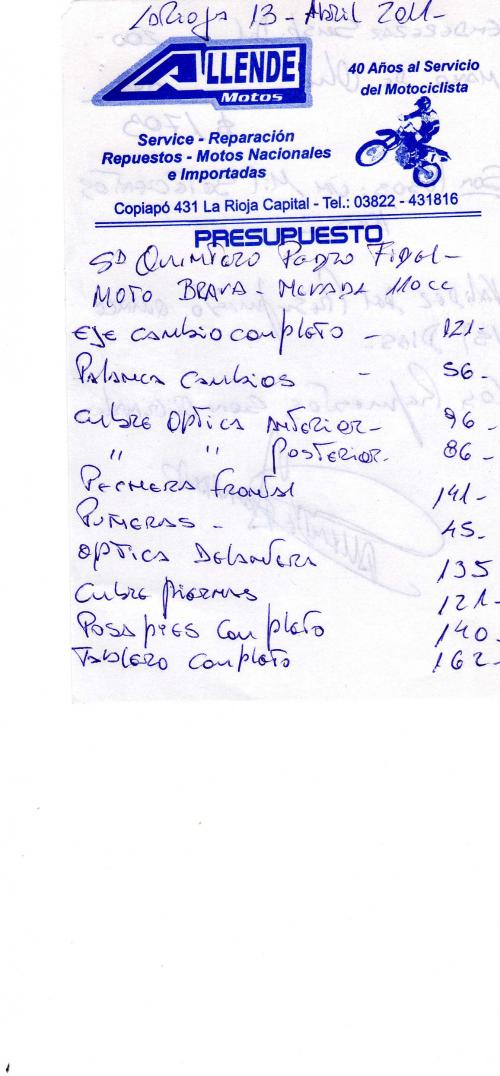 La Rioja 13 - Abril 2011-
ALLENDE
Motos
40 Años al Servicio
del Motociclista
Service - Reparación
Repuestos - Motos Nacionales
e Importadas
Copiapó 431 La Rioja Capital - Tel.: 03822 - 431816
PRESUPUESTO
Sr Quintero Pedro Fidel -
MOTO BRAVA - NEVADA 110 cc
EJE CAMBIO COMPLETO - 121-
PALANCA CAMBIOS - 56-
CUBRE OPTICA ANTERIOR - 96-
" " POSTERIOR - 86-
PECHERA FRONTAL 141-
PUÑERAS - 45-
OPTICA DELANTERA 135
CUBRE PIERNAS 121-
POSA PIES COMPLETO 140-
TABLERO COMPLETO 162-